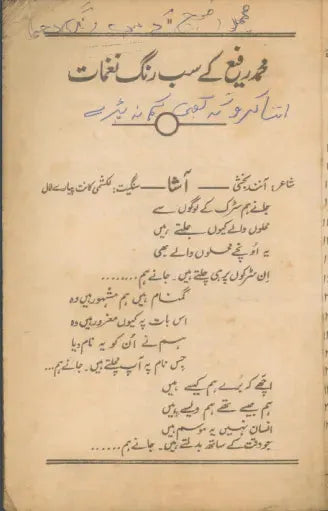 محمد رفیع کے سب رنگ نغمات
شاعر: آنند بخشی — آشا — سنگیت: لکشمی کانت پیارے لال
جانے ہم سڑک کے لوگوں سے
محلوں والے کیوں جلتے ہیں
یہ اونچے محلوں والے بھی
اِن سڑکوں پر ہی چلتے ہیں۔ جانے ہم........
گمنام ہیں ہم مشہور ہیں وہ
اس بات پہ کیوں مغرور ہیں وہ
ہم نے اُن کو یہ نام دیا
جس نام پہ آپ چلتے ہیں۔ جانے ہم...
اچھے کہ بُرے ہم کیسے ہیں
ہم جیسے تھے ہم ویسے ہیں
انسان نہیں یہ موسم ہیں
جو وقت کے ساتھ بدلتے ہیں۔ جانے ہم........